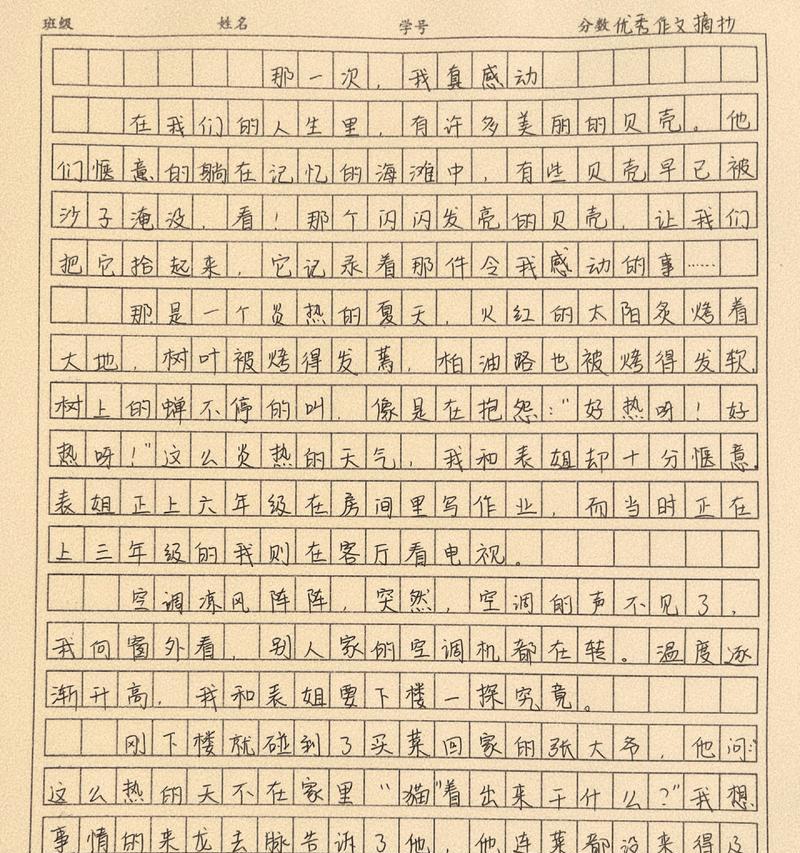 班级 姓名 学号 分数 优秀作文摘抄
那一次，我真感动
在我们的人生里，有许多美丽的贝壳。他
们惬意的躺在记忆的海滩中，有些贝壳早已被
沙子淹没，看！那个闪闪发亮的贝壳，让我们
把它拾起来，它记录着那件令我感动的事……
那是一个炎热的夏天，火红的太阳炙烤着
大地，树叶被烤得发蔫，柏油路也被烤得发软，
树上的蝉不停的叫，像是在抱怨："好热呀！好
热呀！"这么炎热的天气，我和表姐却十分惬意。
表姐正上六年级在房间里写作业，而当时正在
上三年级的我则在客厅看电视。
空调凉风阵阵，突然，空调的声不见了，
我向窗外看，别人家的空调机都在转。温度逐
渐升高，我和表姐要下楼一探究竟。
刚下楼就碰到了买菜回家的张大爷，他问："
这么热的天不在家里"猫"着出来干什么？"我想
事情的来龙去脉告诉了他，他连菜都没来得及